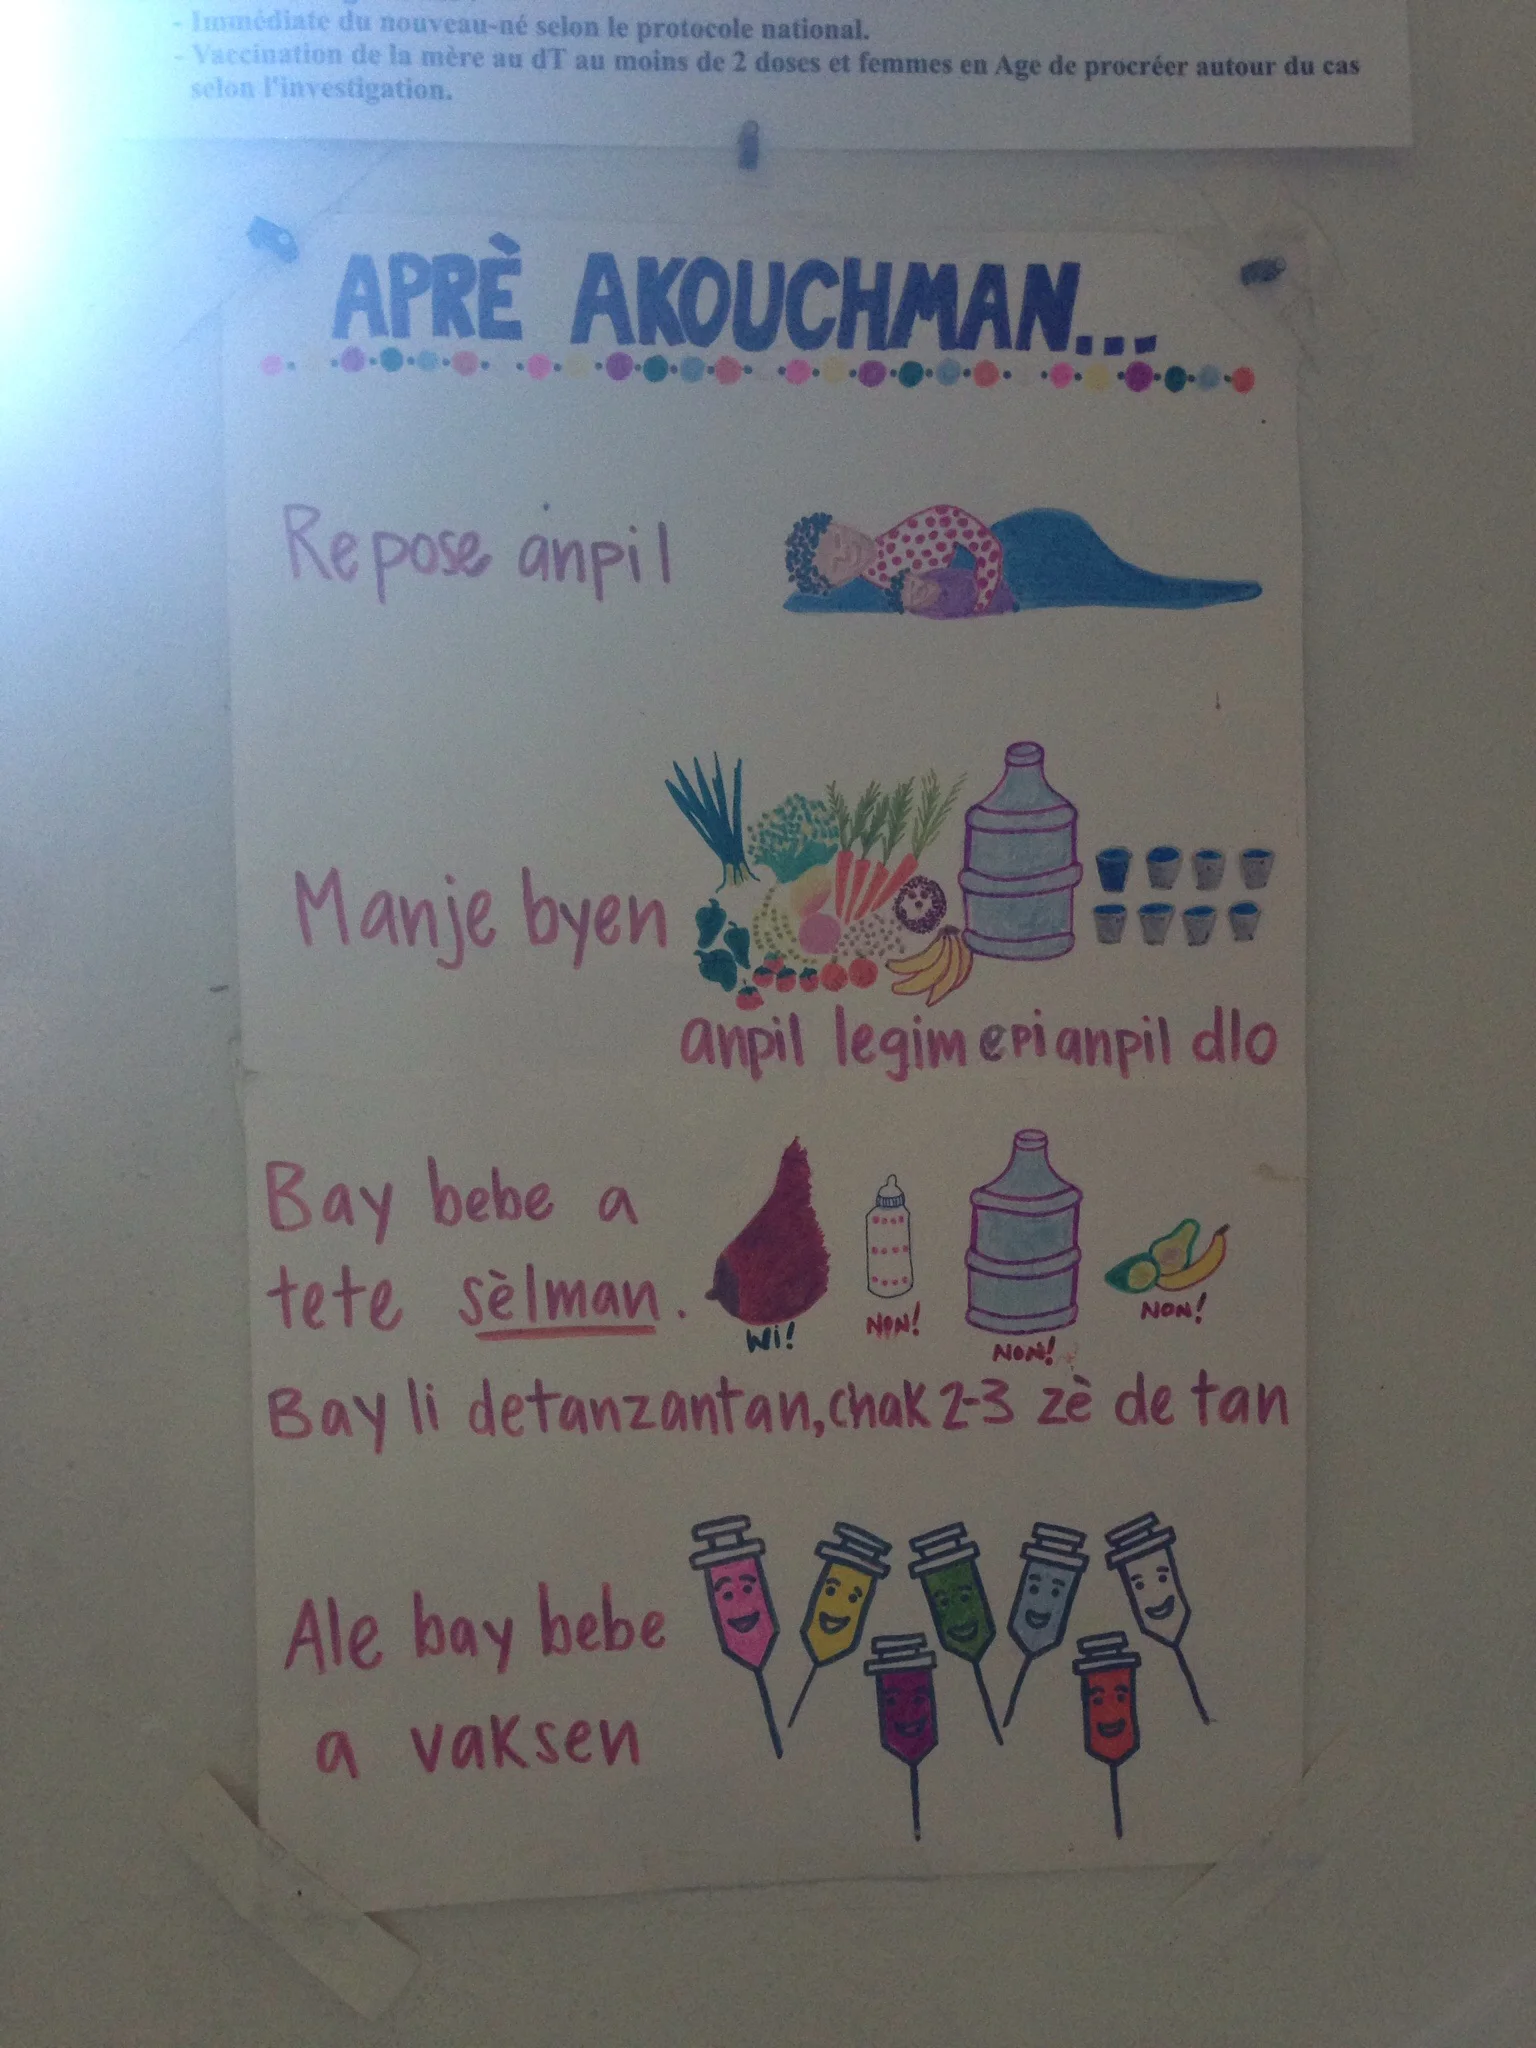 - Immédiate du nouveau-né selon le protocole national.
- Vaccination de la mère au dT au moins de 2 doses et femmes en Age de procréer autour du cas
selon l'investigation.
APRÈ AKOUCHMAN...
Repose anpil
Manje byen
anpil legim epi anpil dlo
Bay bebe a
tete sèlman.
WI!
NON!
NON!
NON!
Bay li detanzantan, chak 2-3 zè de tan
Ale bay bebe
a vaksen